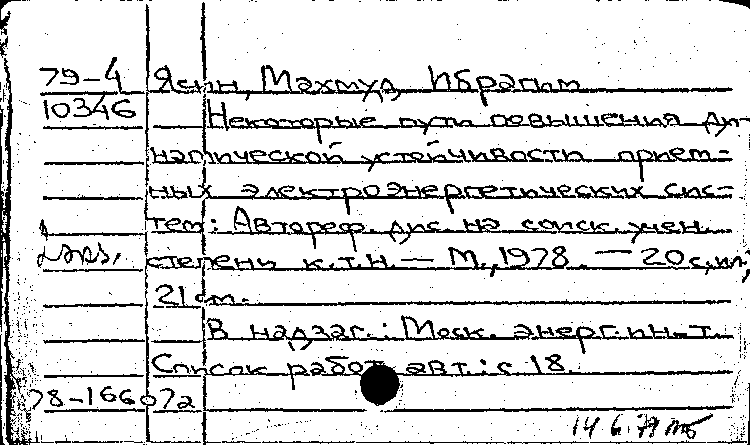 79-4 Ясин, Махмуд Ибрагим
10346 Некоторые пути повышения ди-
намической устойчивости прием-
ных электроэнергетических сис-
тем: Автореф. дис. на соиск. учен.
степени к.т.н. — М., 1978. — 20 с., ил.;
21 см.
В надзаг.: Моск. энерг. ин-т.
Список работ авт.: с. 18.
78-166072
14 6 79